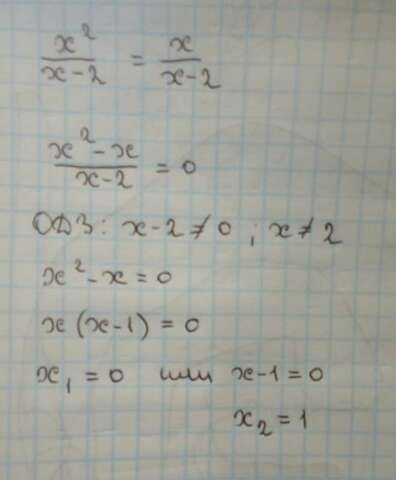 x²/(x-2) = x/(x-2)
(x²-x)/(x-2) = 0
ОДЗ: x-2≠0; x≠2
x²-x=0
x(x-1)=0
x₁=0 или x-1=0
x₂=1